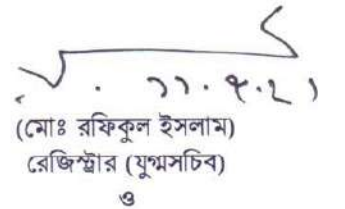 (মোঃ রফিকুল ইসলাম)
রেজিস্ট্রার (যুগ্মসচিব)
ও